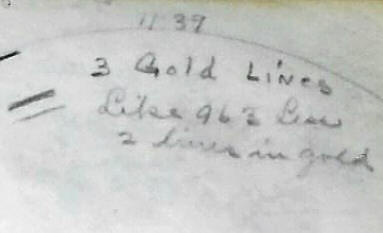 11 39
3 Gold Lines
Like 963
2 lines in gold